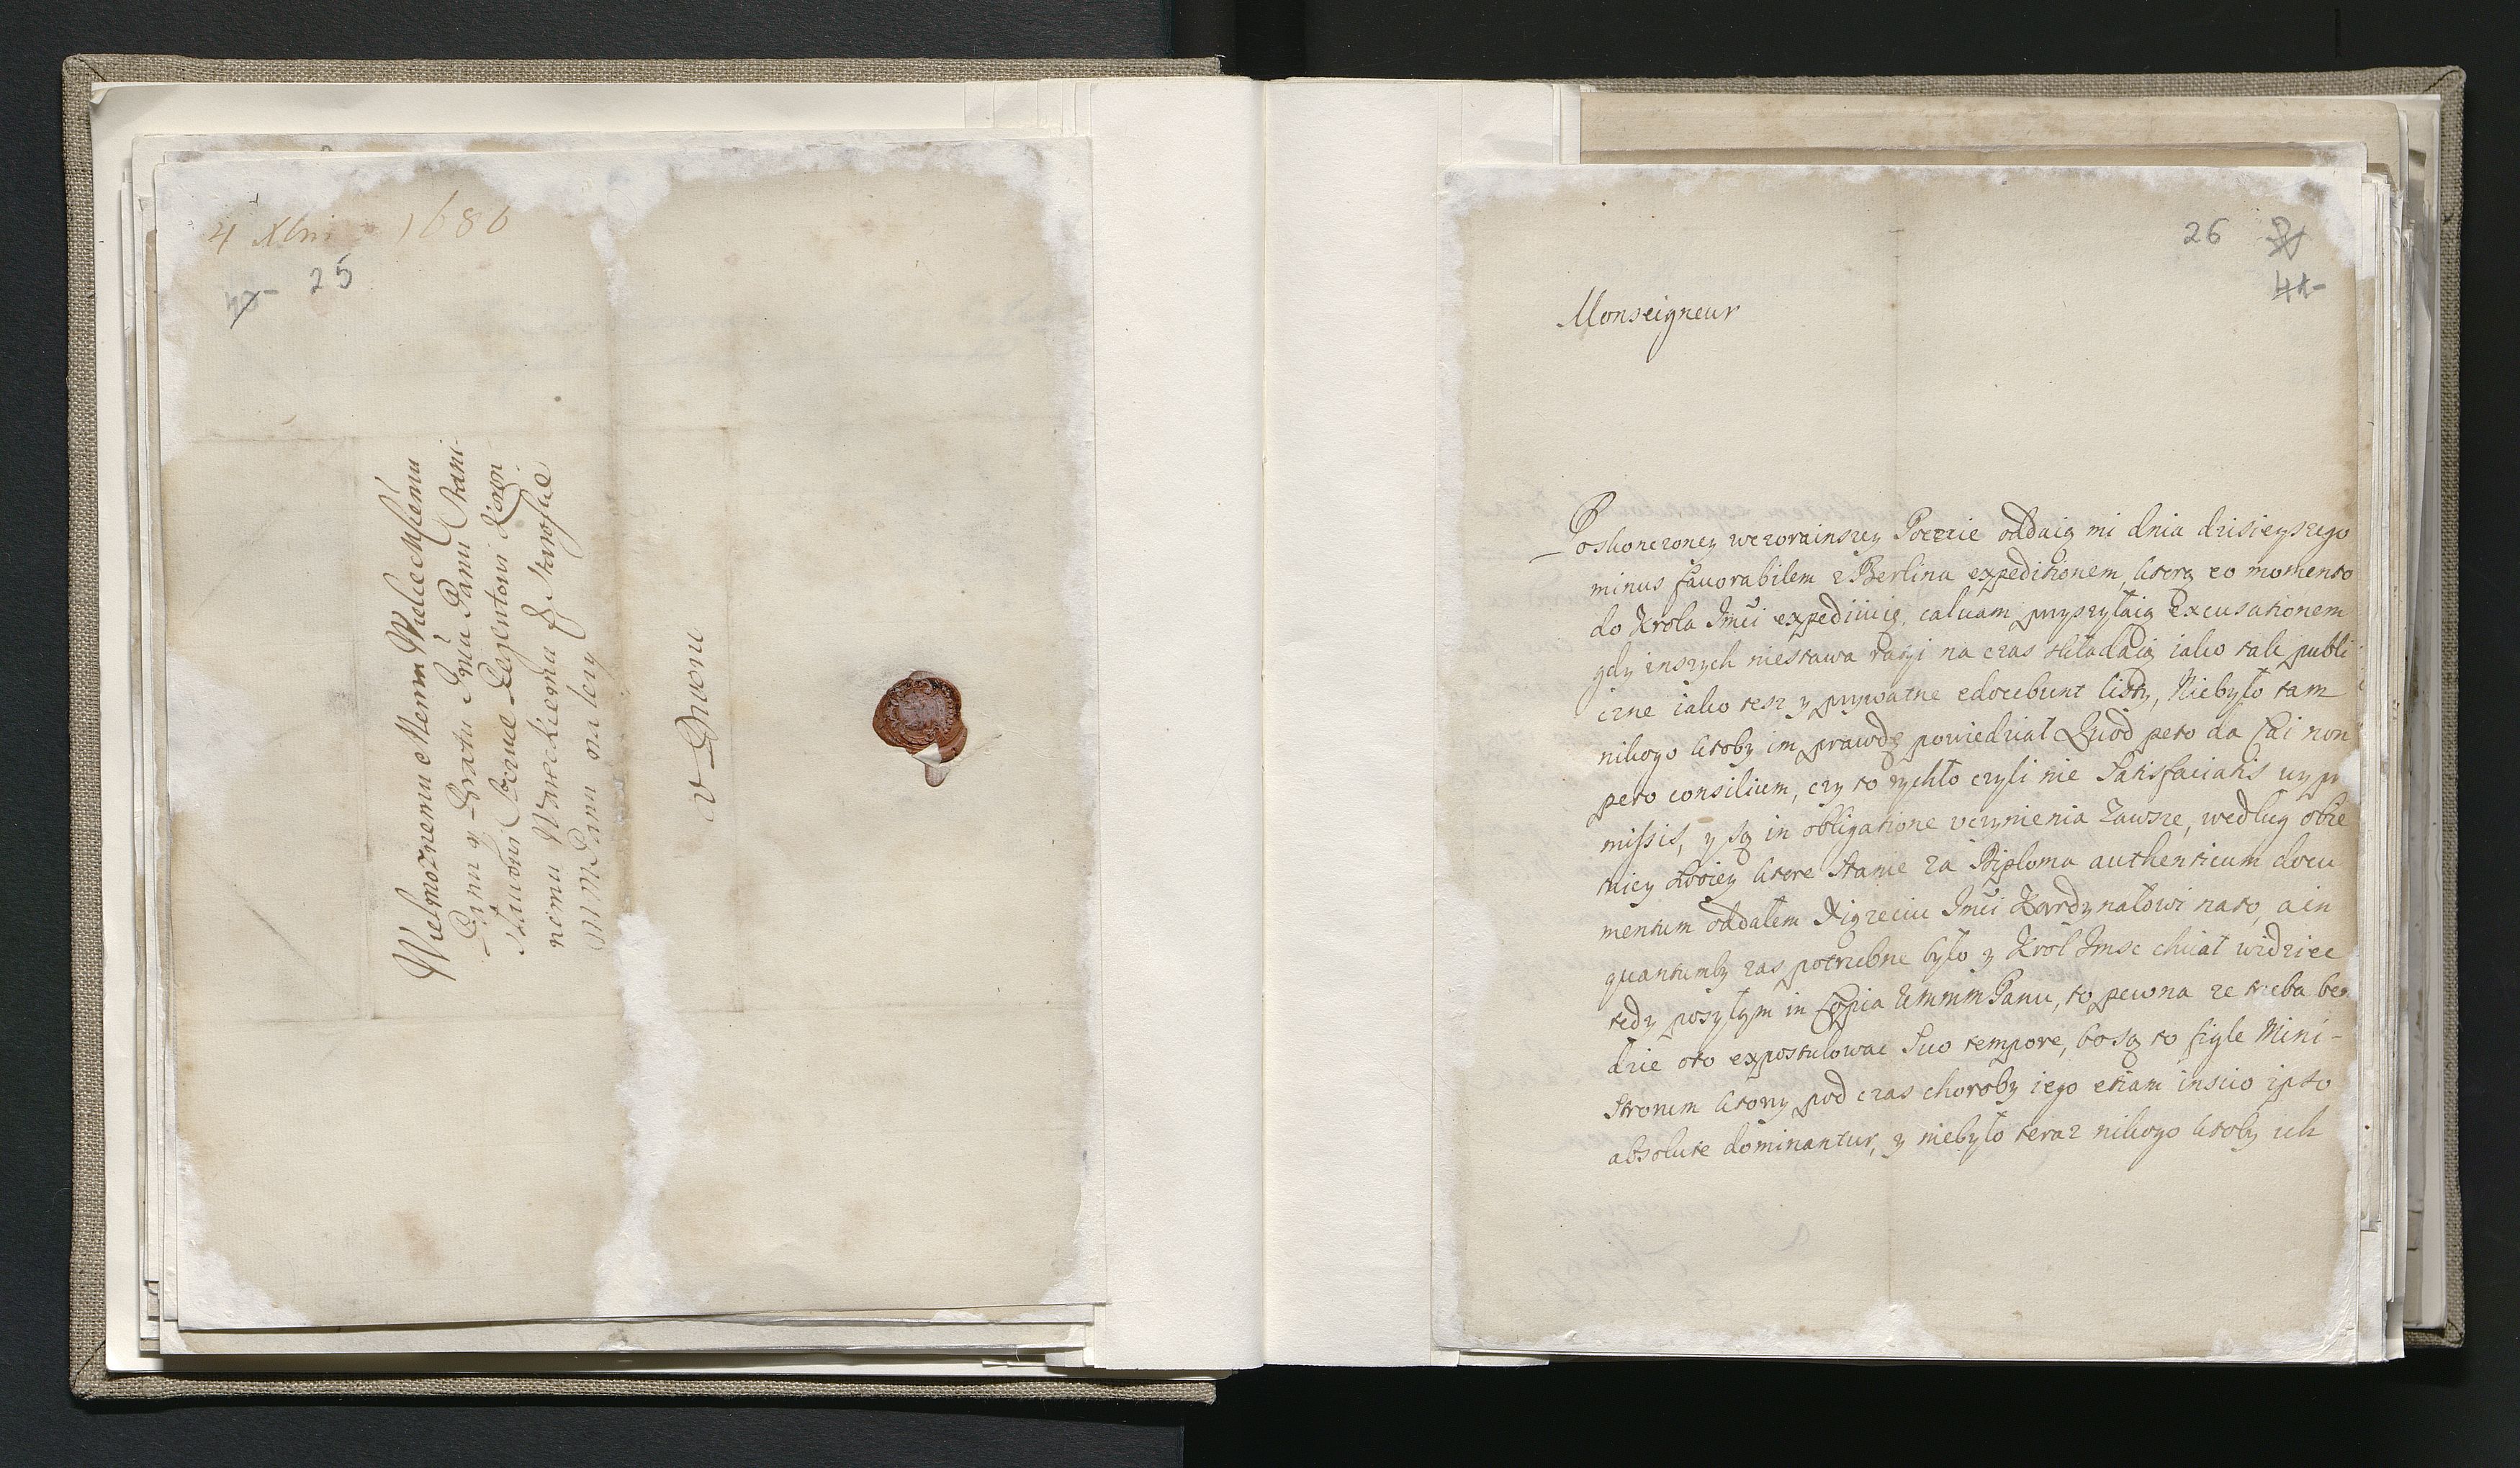 4 Xbris 1686
25
Wielmoznemu Memu Wielce Mściemu
Panu y Bratu Jmću Panu Stani-
sławowi Regentowi Koron
niemu Wareckiemu & Staroście
M M Panu należy
26
Monseigneur
Poskonczoney wczorainszey Poczcie oddaią mi dnia dzisieyszego
minus favorabilem z Berlina expeditionem, ktorą eo momento
do Krola Jmći expediuię, caluam przysyłaią excusationem
gdy inszych niestawa racyi na czas składaią iako tak publi
czne iako tesz y prywatne edocebunt listy, Niebyło tam
nikogo ktoby im prawdę powiedział Quod peto da Cai non
peto consilium, czy to rychło czyli nie Satisfaciatis uypr
missis, y są in obligatione uczynienia zawsze, według obie
tnicy swoiey ktore stanie za Diploma authenticum docu
mentum oddałem Xiązęciu Jmći Kardynałowi nato, a in
quantumby zas potrzebne było y Krol Jmsc chciał widziec
tedy posyłym in Copia Wmmm Panu, to pewna ze trzeba bę
dzie oto expostulowac Suo tempore, bo są to figle Mini-
strorum ktorzy pod czas choroby iego etiam inscio ipso
absolute dominantur, y niebyło teraz nikogo ktoby ich